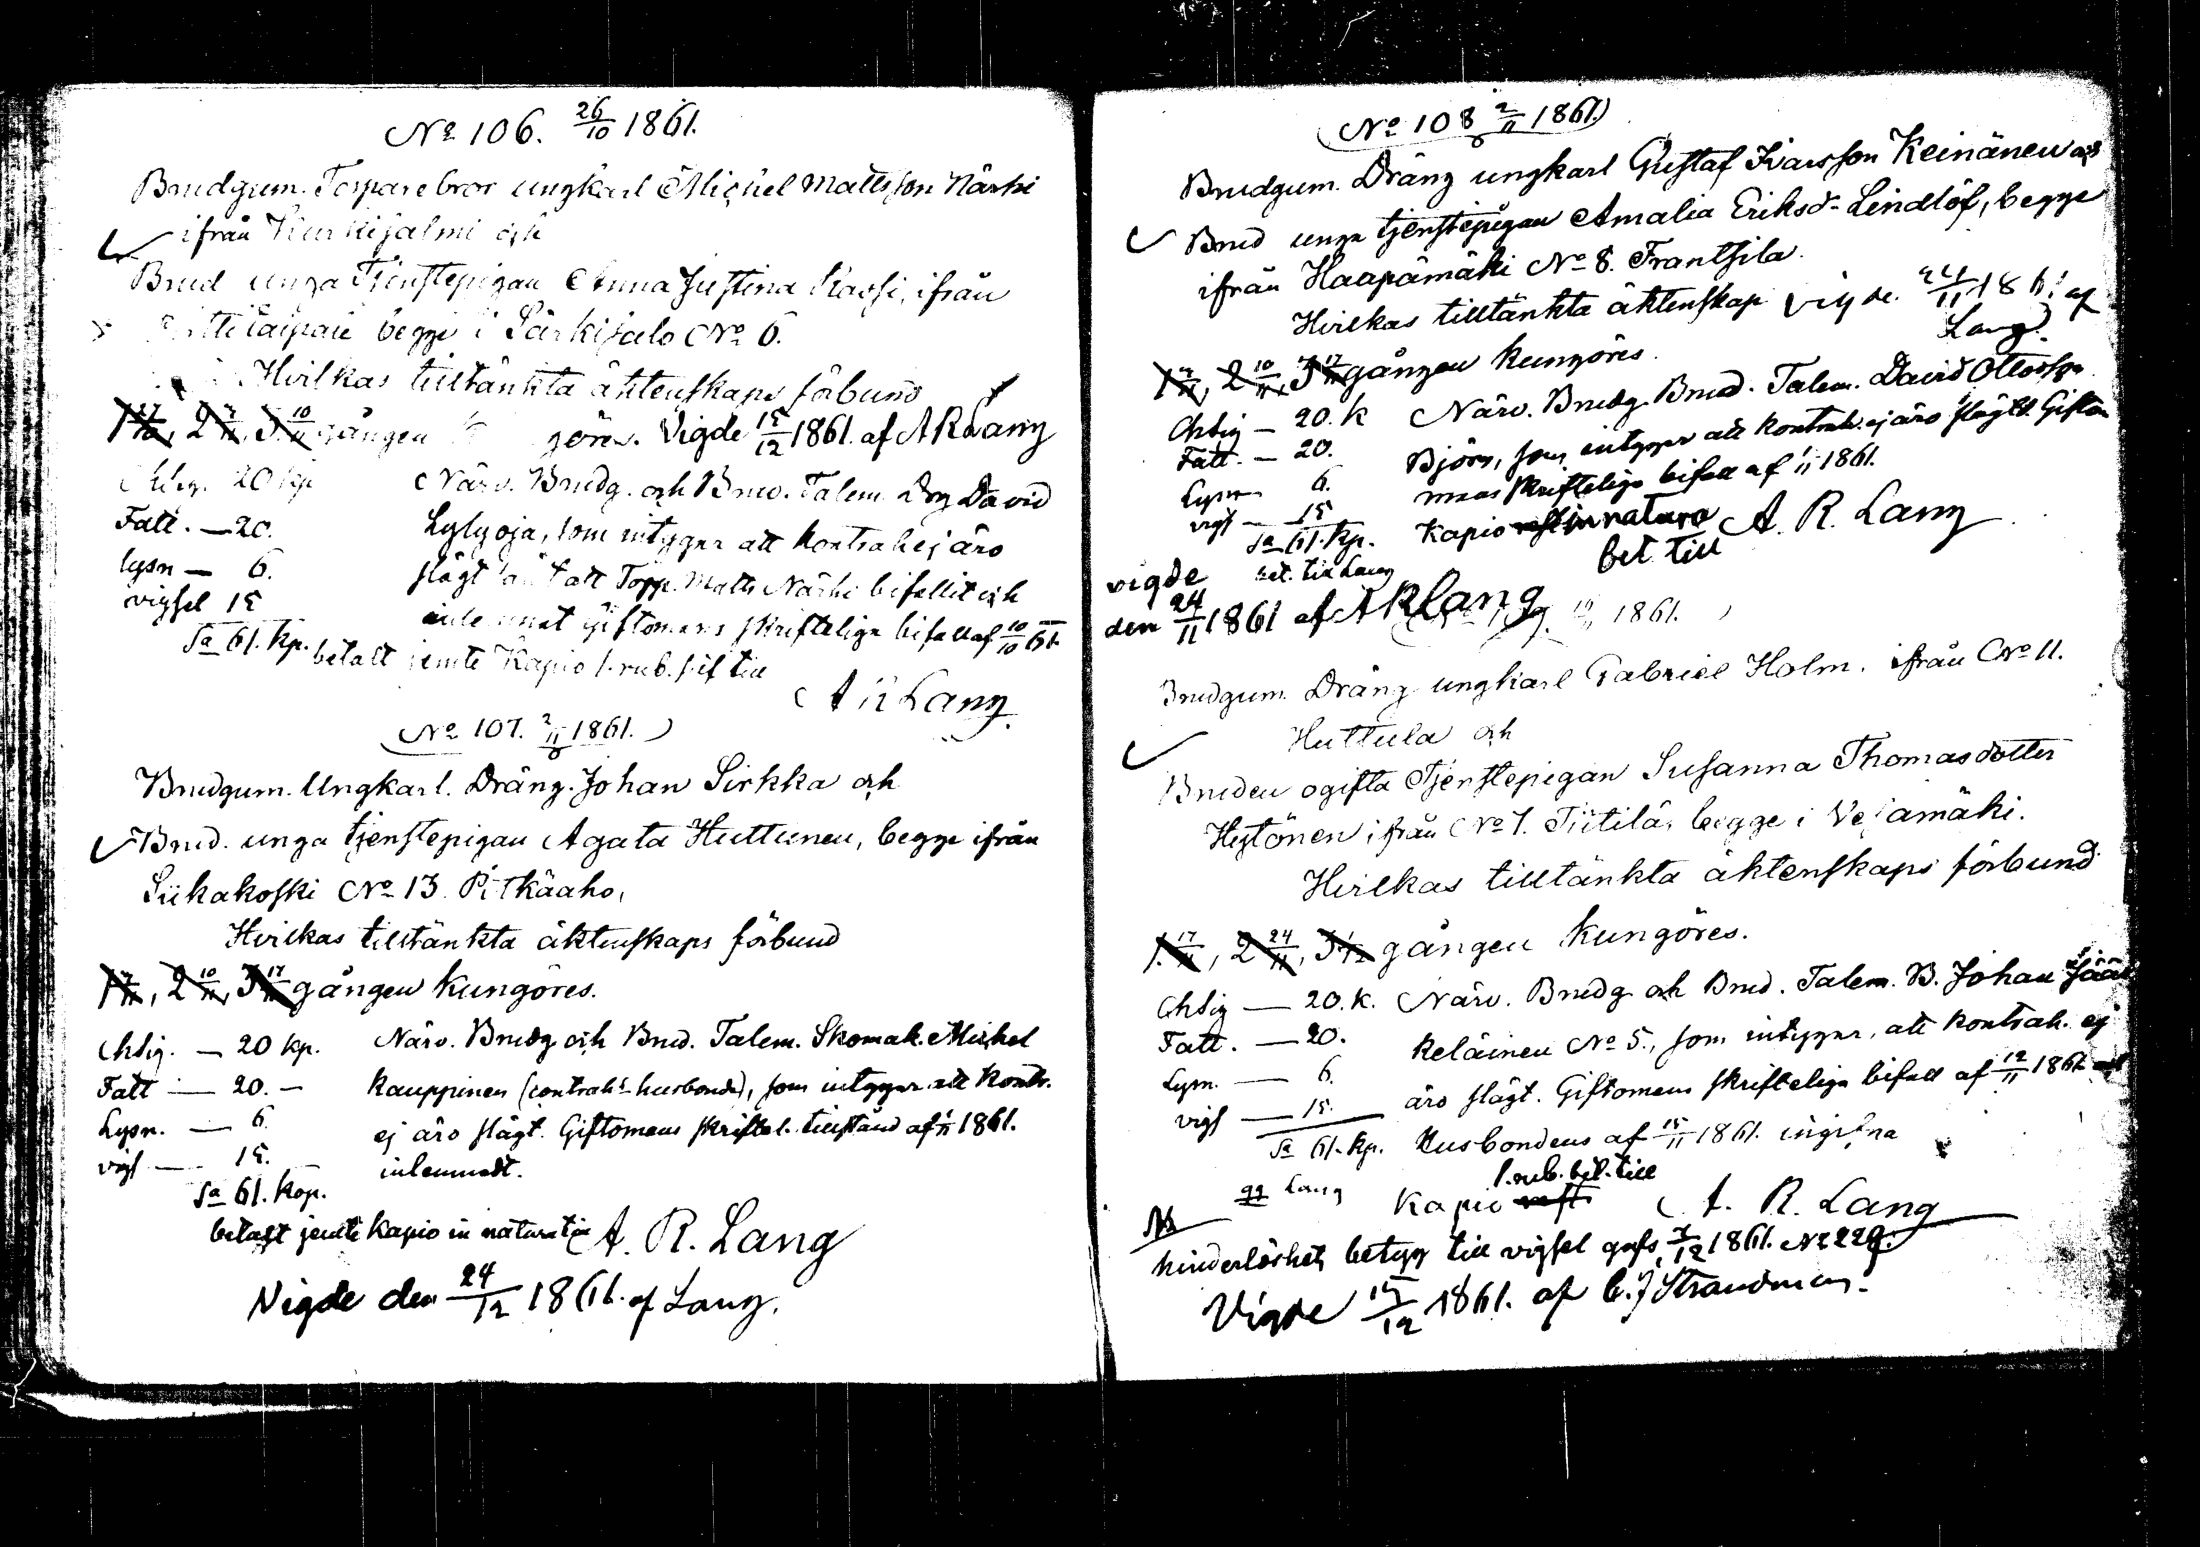 No 106. 26/10 1861.
Brudgum. Torparebror ungkarl Michel Mattsson Närhi
ifrån Kurkijalmi och
Brud unga Tjenstepigan Anna Justina Kassi, ifrån
begge i Särkisalo No 6.
Hvilkas tilltänkta äktenskaps förbund
1 27/10, 2 3/11, 3 10/11 gången göres. Vigde 15/12 1861. af A R Lang
Chtig. 20 kp.
Närv. Brudg. och Brud. Talem. Drg David
Fatt. — 20.
Lylyoja, som intygar att kontrah ej äro
lysn — 6.
slägt att Torp. Matts Närhi bifallit och
vigsel 15
giftomans skriftliga bifall af 10/10 61.
Sa 61. kp. betalt jemte Kapio 1. rub. silf till
A R Lang
No 107. 2/11 1861.
Brudgum. Ungkarl. Dräng. Johan Sirkka och
Brud. unga tjenstepigan Agata Huttunen, begge ifrån
Siikakoski No 13. Pitkäaho,
Hvilkas tilltänkta äktenskaps förbund
1 3/11, 2 10/11, 3 17/11 gången kungöres.
Chtig. — 20 kp. Närv. Brudg och Brud. Talem. Skomak. Michel
Fatt — 20. — Kauppinen (contrah.s husbonde), som intygar att kontr.
Lysn. — 6. ej äro slägt. Giftomans skriftel. tillstånd af 1/11 1861.
vigs — 15. inlemnadt.
Sa 61. kop.
betalt jemte kapio in natura till A. R. Lang
Vigde den 24/12 1861. af Lang.
No 108 2/11 1861.
Brudgum. Dräng ungkarl Gustaf Ivarsson Keinänen och
Brud unga tjenstepigan Amalia Eriksd. Lindlöf, begge
ifrån Haapämäki No 8. Frantsila.
Hvilkas tilltänkta äktenskap vigde. 24/11 1861 af
Lang.
1 3/11, 2 10/11, 3 17/11 gången kungöres.
Chtig — 20. k Närv. Brudg. Brud. Talem. David Ottosson
Fatt. — 20. Björn, som intygar att kontrah. ej äro slägt. Giftom
Lysn 6. mans skriftliga bifall af 1/11 1861.
vigs — 15 Kapio in natura A. R. Lang
Sa 61. kp. bet till
bet. till Lang
vigde
den 24/11 1861 af A R Lang
1861.
Brudgum. Dräng ungkarl Gabriel Holm. ifrån No 11.
Huttula och
Bruden ogifta Tjenstepigan Susanna Thomasdotter
Hytönen ifrån No 1. Tiitilä, begge i Vesamäki.
Hvilkas tilltänkta äktenskaps förbund
1. 17/11, 2 24/11, 3 1/12 gången kungöres.
Chtig — 20. k. Närv. Brudg och Brud. Talem. B. Johan Jääs
Fatt. — 20. keläinen No 5., som intygar, att kontrah. ej
Lysn. — 6. äro slägt. Giftomans skriftliga bifall af 12/11 1861
vigs — 15. Husbondens af 15/11 1861. ingifna
Sa 61. kp. 1. rub. bet. till
Lang Kapio A. R. Lang
hinderlöshets betyg till vigsel gafs 7/12 1861. No 229.
Vigde 15/12 1861. af C. J Strandman.